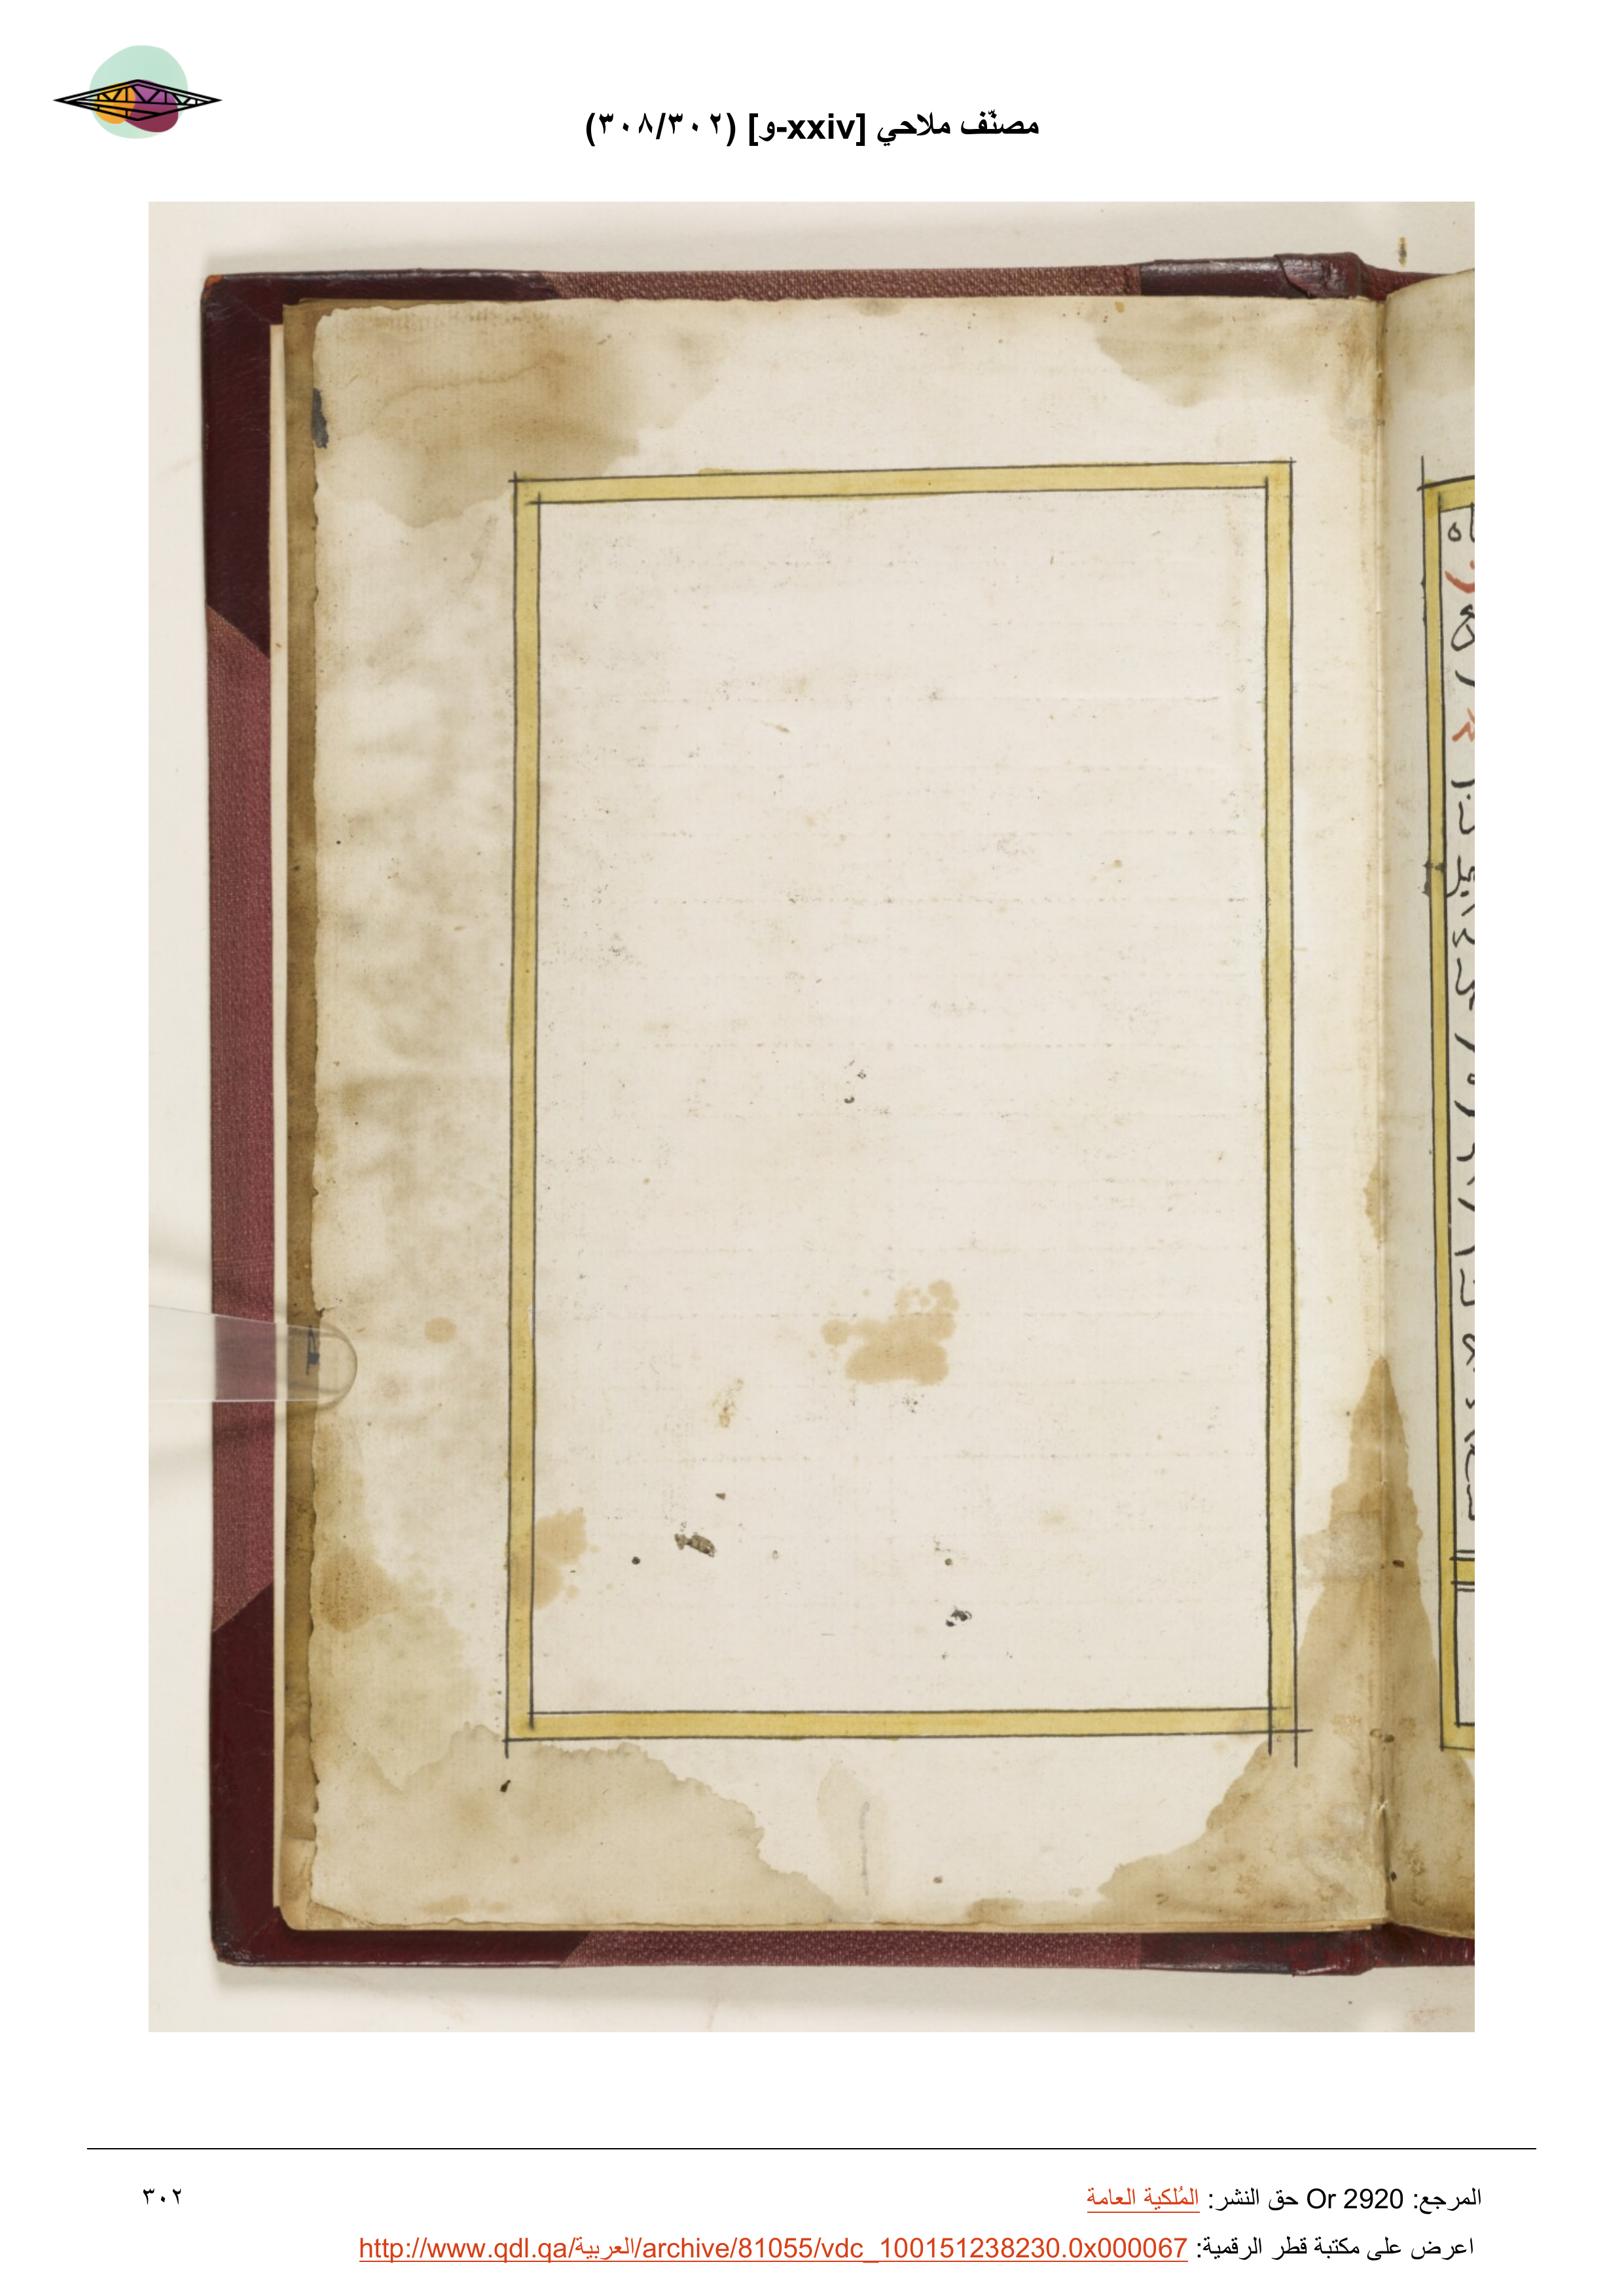 مصنّف ملاحي [xxiv-و] (٣٠٨/٣٠٢)
المرجع: Or 2920 حق النشر: المُلكية العامة
٣٠٢
اعرض على مكتبة قطر الرقمية: http://www.qdl.qa/العربية/archive/81055/vdc_100151238230.0x000067